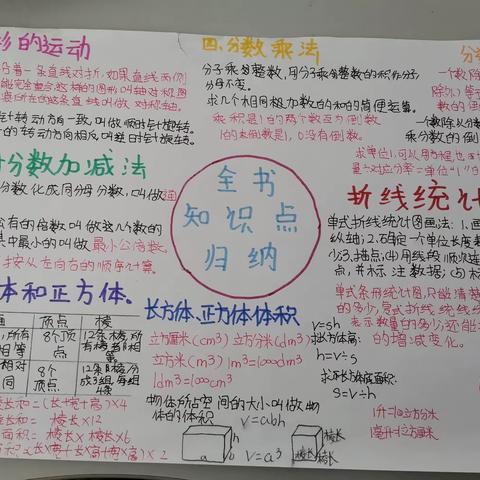 形的运动
沿着一条直线对折,如果直线两侧
能完全重合,这样的图形叫轴对称图
所在的这条直线叫做对称轴。
针转动方向一致,叫做顺时针旋转。
的转动方向相反,叫逆时针旋转。
分数加减法
分数化成同分母分数,叫做通
公有的倍数叫做这几个数的
其中最小的叫做最小公倍数。
按从左向右的顺序计算。
体和正方体.
顶点
棱
8个顶点
12条棱,所有棱都相等。
相对
同
8个顶点
12条棱分成3组,每组4条
棱长和=(长+宽+高)×4
棱长和=棱长×12
面积=棱长×棱长×6
四.分数乘法
分子乘整数,用分子乘整数的积作分子
分母不变。
求几个相同相加数的和的简便运算。
乘积是1的两个数互为倒数
1的倒数是1,0没有倒数。
全书
知识点
归纳
长方体、正方体体积
立方厘米(cm³) 立方分米(dm³)
立方米(m³) 1m³=1000dm³
1dm³=1000cm³
物体所占空间的大小叫做物
体的体积
V=abh
a
b
h
V=a³
棱长
棱长
棱长
分
一个数除
除外)等于
数的倒
一个数除以分数
乘分数的倒
求单位1,可以用方程也可
量÷对应分率=单位"1"的
折线统计
单式折线统计图画法:1.画
纵轴;2.确定一个单位长度表
少;3.描点;4.用线段顺次连
点,并标注数据;5.标
单式条形统计图,只能清楚
的多少,
表示数量的多少,还能
的增减变化。
V=sh
求长方体高:
h=V÷s
求长方体底面积:
S=V÷h
1升=1立方分米
1毫升=1立方厘米